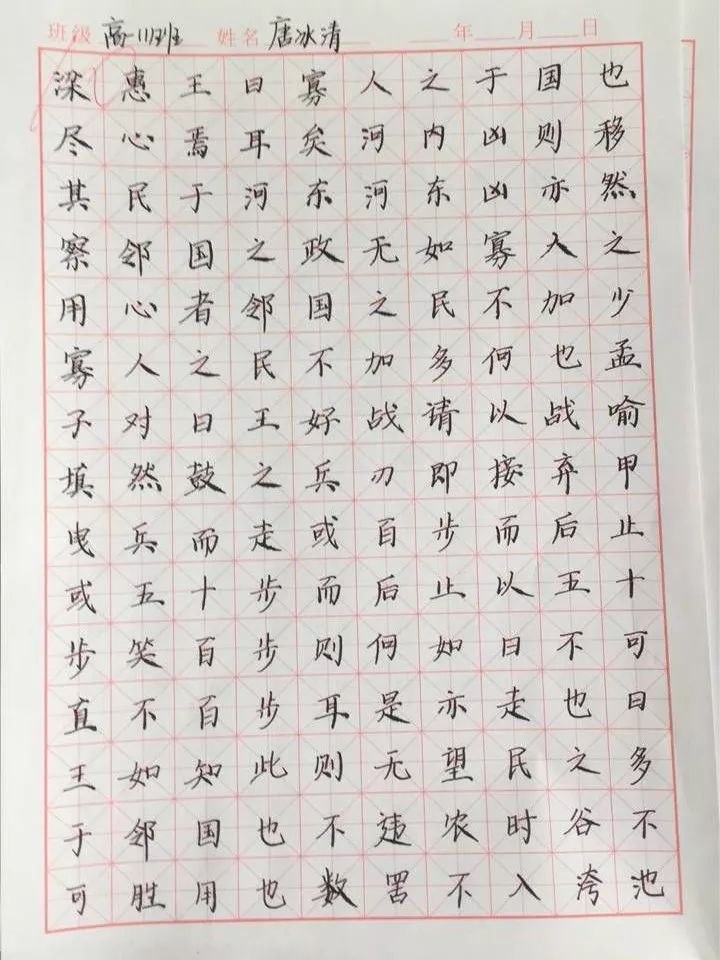 班级 高一11班 姓名 唐冰清 年 月 日
梁惠王曰寡人之于国也
尽心焉耳矣河内凶则移
其民于河东河东凶亦然
察邻国之政无如寡人之
用心者邻国之民不加少
寡人之民不加多何也孟
子对曰王好战请以战喻
填然鼓之兵刃即接弃甲
曳兵而走或百步而后止
或五十步而后止以五十
步笑百步则何如曰不可
直不百步耳是亦走也曰
王如知此则无望民之多
于邻国也不违农时谷不
可胜用也数罟不入洿池